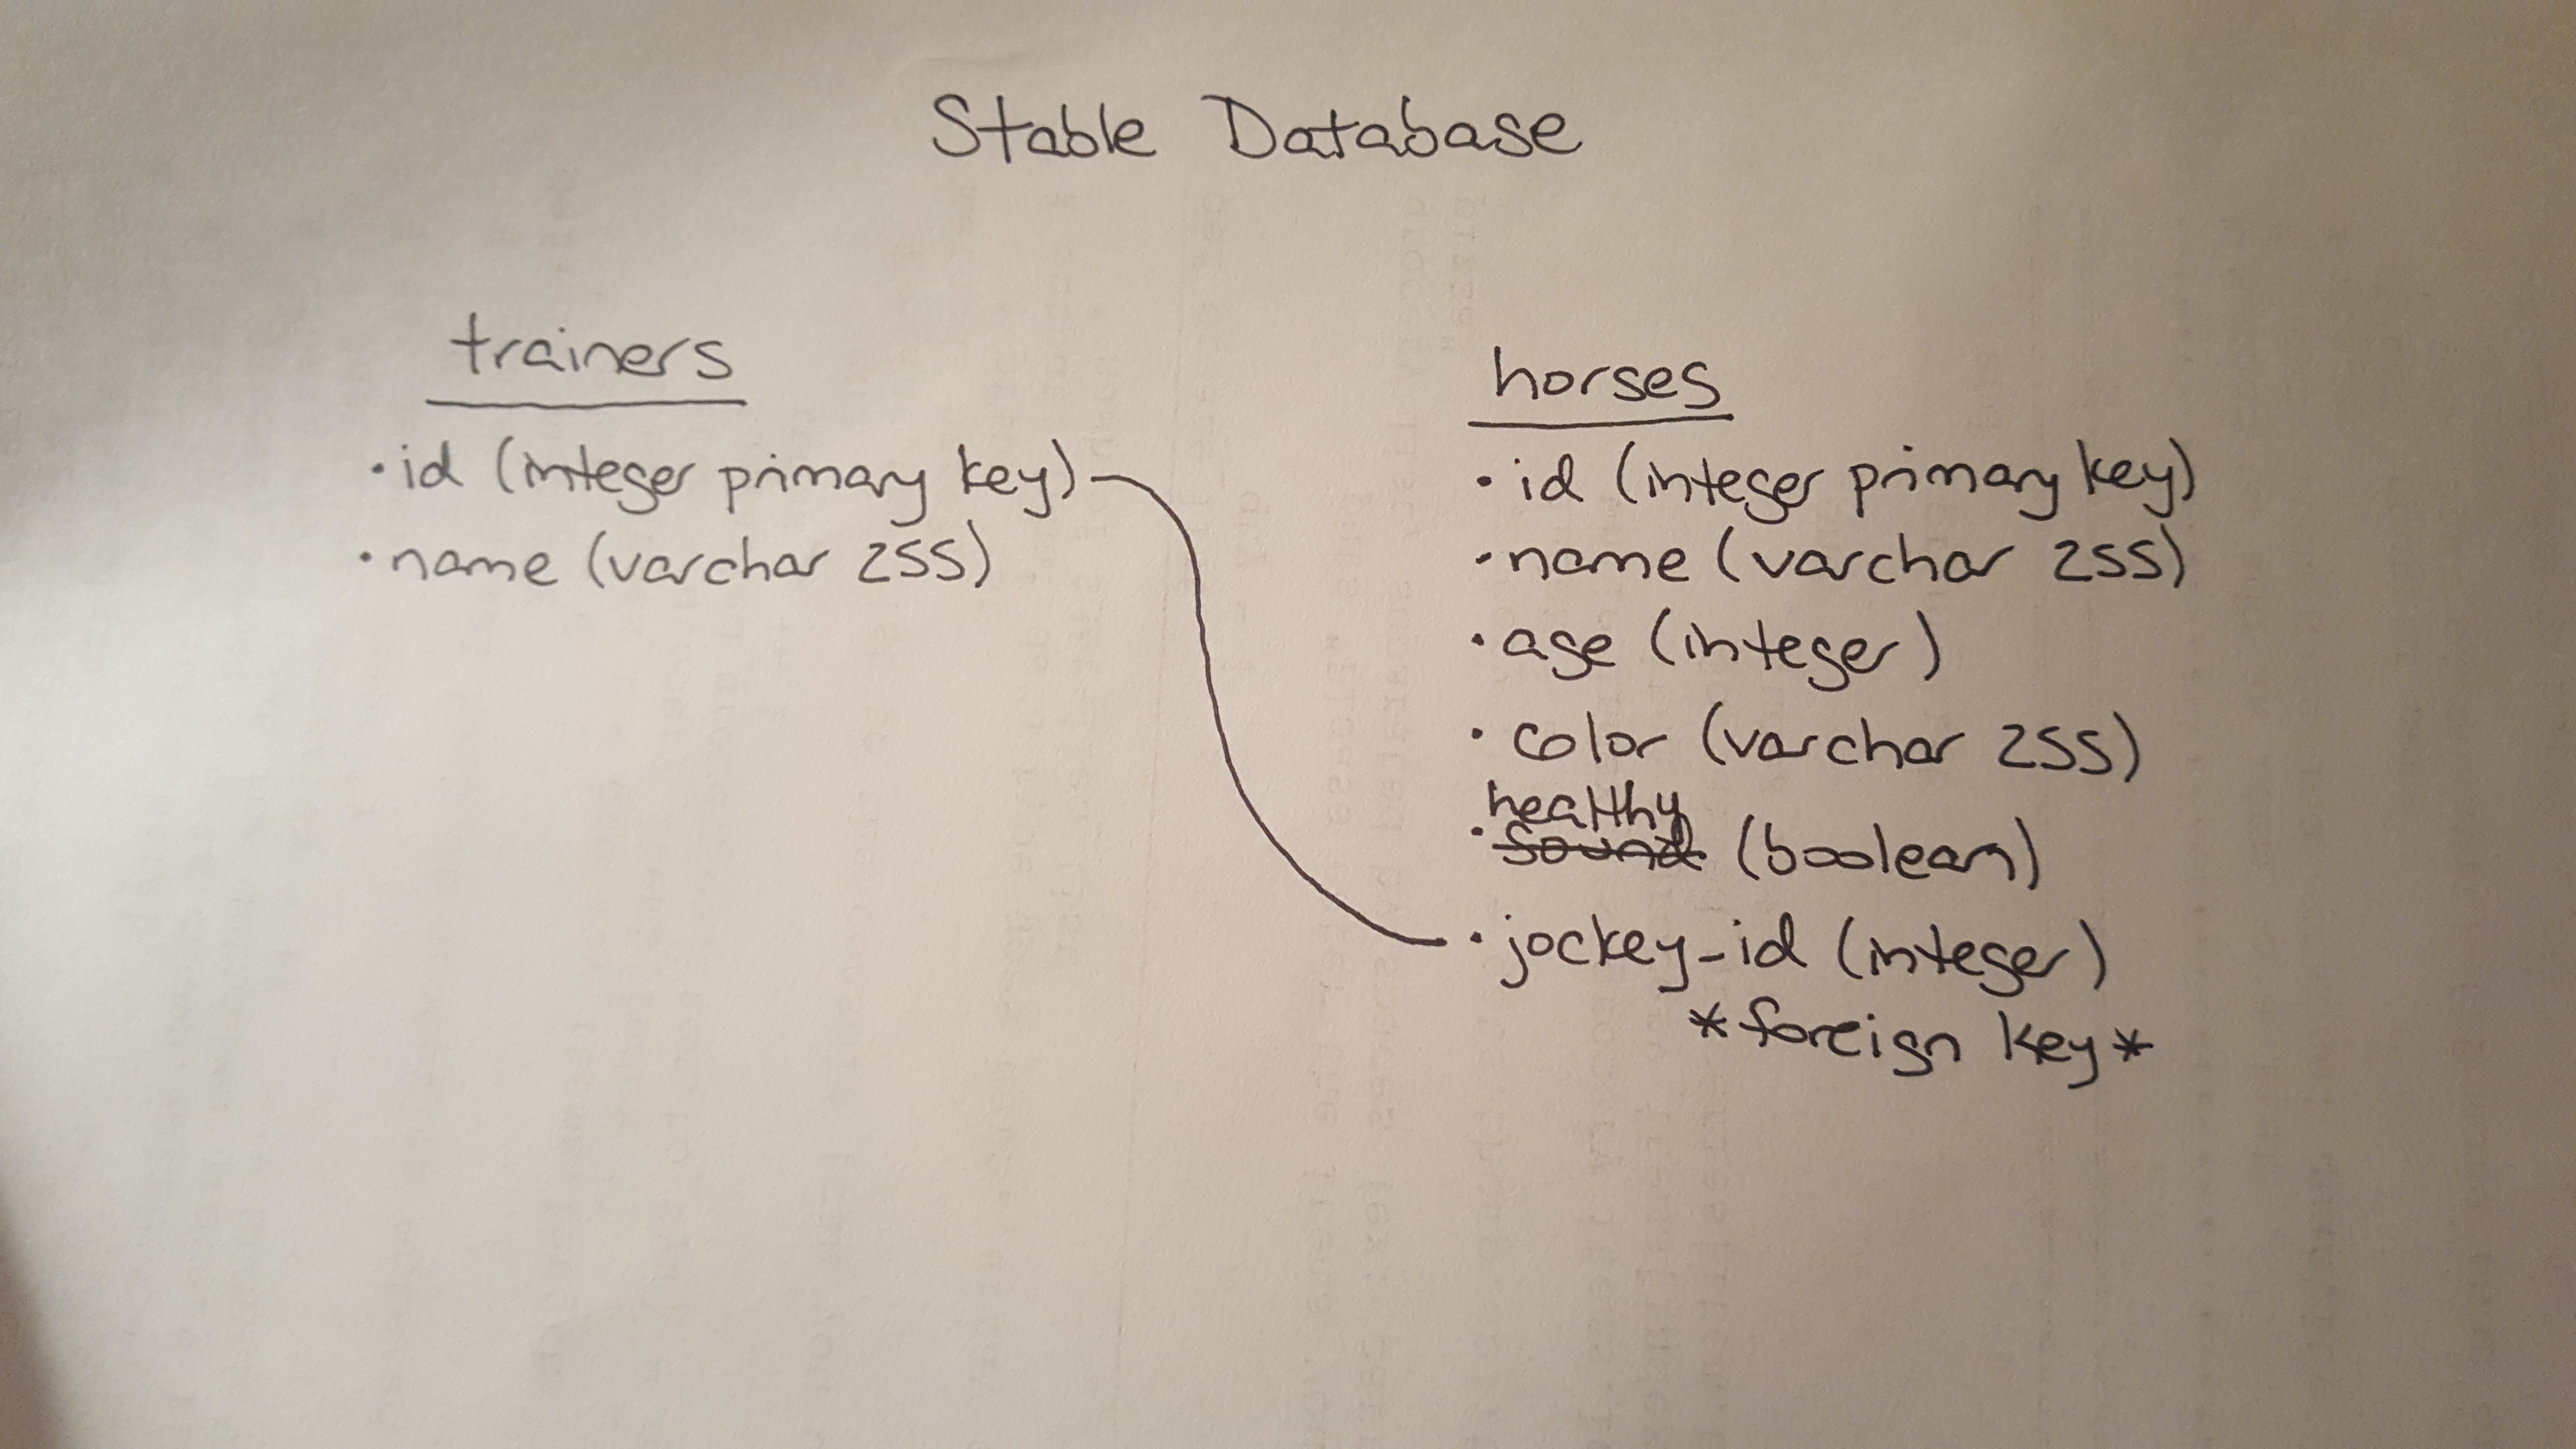 Stable Database
trainers
• id (integer primary key)
• name (varchar 255)
horses
• id (integer primary key)
• name (varchar 255)
• age (integer)
• color (varchar 255)
healthy
• sound (boolean)
• jockey_id (integer)
*foreign key*